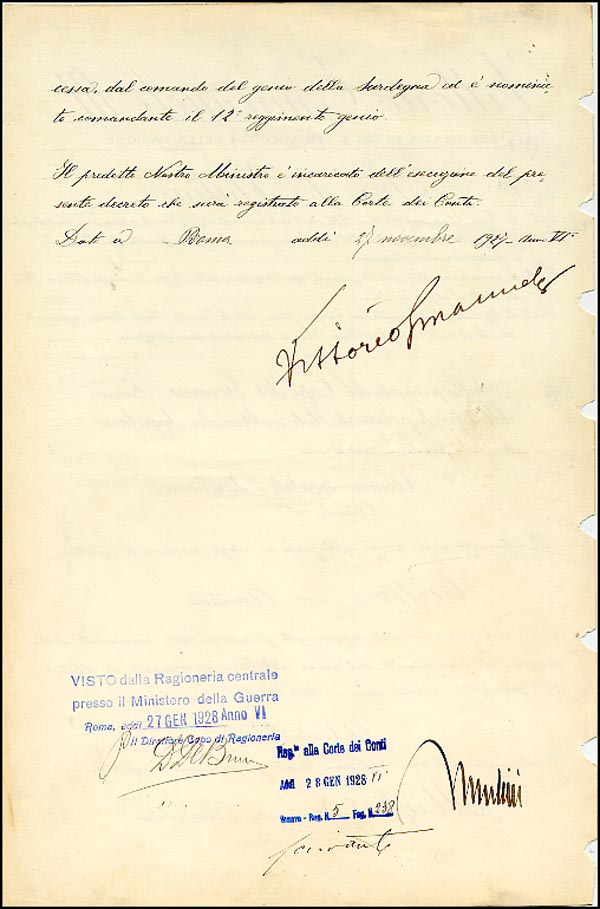 cessa dal comando del genio della Sardegna ed è nomina-
to comandante il 12° reggimento genio.
Il predetto Nostro Ministro è incaricato dell'esecuzione del pre-
sente decreto che sarà registrato alla Corte dei Conti.
Dato a Roma addì 27 novembre 1927 - Anno VI°
Vittorio Emanuele
VISTO dalla Ragioneria centrale
presso il Ministero della Guerra
Roma, addì 27 GEN 1928 Anno VI
p Il Direttore Capo di Ragioneria
Reg.to alla Corte dei Conti
Addì 28 GEN 1928 VI
Guerra - Reg. N. 5 Fog. N. 238